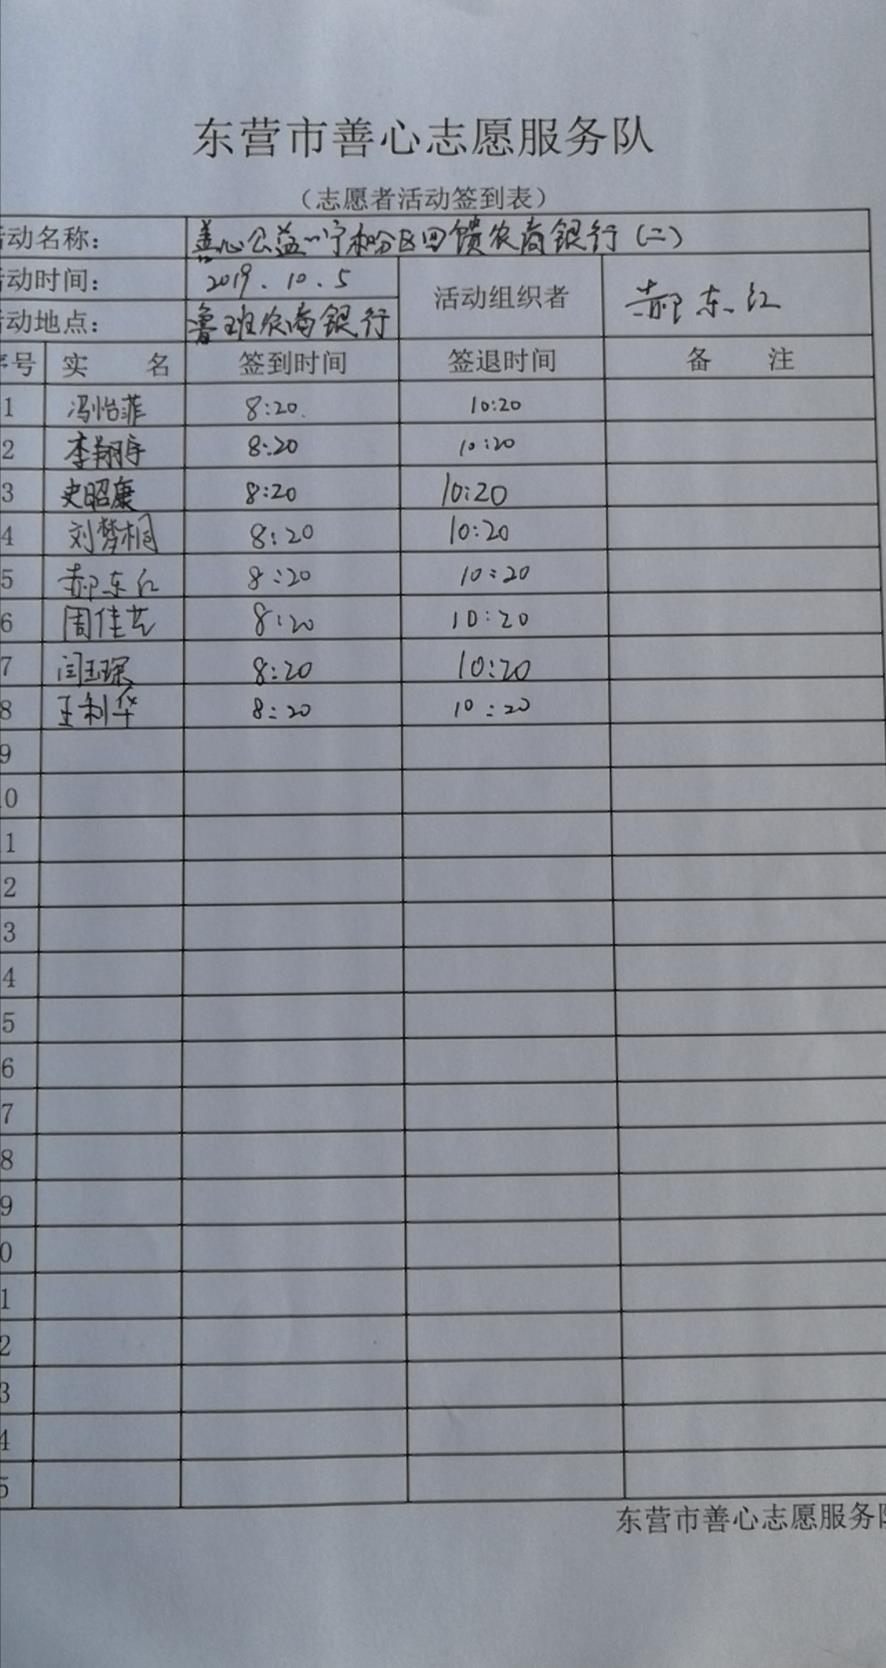 东营市善心志愿服务队
(志愿者活动签到表)
活动名称: 善心公益 回馈农商银行(二)
活动时间: 2019.10.5 活动组织者 郝东红
活动地点: 鲁班农商银行
序号 实 名 签到时间 签退时间 备 注
1 冯怡菲 8:20. 10:20
2 李翔宇 8:20 10:20
3 史昭康 8:20 10:20
4 刘梦桐 8:20 10:20
5 郝东红 8:20 10:20
6 周佳艺 8:20 10:20
7 闫玉琛 8:20 10:20
8 王利华 8:20 10:20
9
0
1
2
3
4
5
6
7
8
9
0
1
2
3
4
5
东营市善心志愿服务队